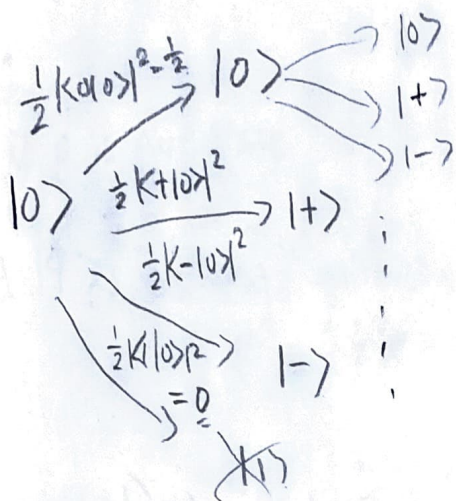 ½|<0|0>|²=½ |0> |0>
|+>
|->
|0> ½|<+|0>|² |+>
½|<-|0>|²
½|<1|0>|² |->
=0
|1>